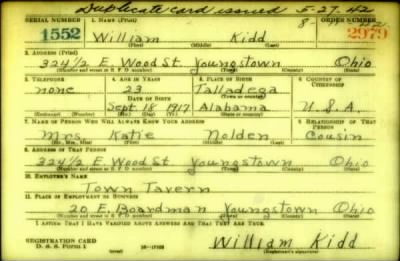 Duplicate card issued 5-27-42
SERIAL NUMBER 1. NAME (Print) ORDER NUMBER
1552 William Kidd 2979
(First) (Middle) (Last)
2. ADDRESS (Print)
324 1/2 E. Wood St. Youngstown Ohio
(Number and street or R. F. D. number) (Town) (County) (State)
3. TELEPHONE 4. AGE IN YEARS 5. PLACE OF BIRTH 6. COUNTRY OF CITIZENSHIP
none 23 Talladega
DATE OF BIRTH (Town or county)
Sept. 18 1917 Alabama U.S.A.
(Exchange) (Number) (Mo.) (Day) (Yr.) (State or country)
7. NAME OF PERSON WHO WILL ALWAYS KNOW YOUR ADDRESS RELATIONSHIP OF THAT PERSON
Mrs. Katie Nolden Cousin
(Mr., Mrs., Miss) (First) (Middle) (Last)
9. ADDRESS OF THAT PERSON
324 1/2 E. Wood St. Youngstown Ohio
(Number and street or R. F. D. number) (Town) (County) (State)
10. EMPLOYER'S NAME
Town Tavern
11. PLACE OF EMPLOYMENT OR BUSINESS
20 E. Boardman Youngstown Ohio
(Number and street or R. F. D. number) (Town) (County) (State)
I AFFIRM THAT I HAVE VERIFIED ABOVE ANSWERS AND THAT THEY ARE TRUE.
REGISTRATION CARD
D. S. S. Form 1 William Kidd
(Registrant's signature)